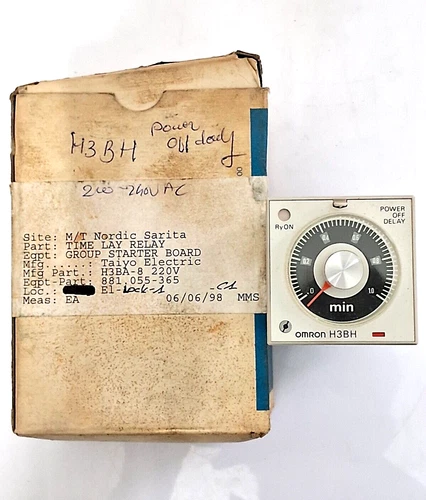 H3BH
Power
Off
8
240V AC
Site: M/T Nordic Sarita
Part: TIME LAY RELAY
Eqpt: GROUP STARTER BOARD
Mfg .....: Taiyo Electric
Mfg Part.: H3BA-8 220V
Eqpt-Part: 881.055-365
Loc.: El-Lock-1 -C1
Meas: EA 06/06/98 MMS
Ry ON
POWER
OFF
DELAY
0
10
min
OMRON H3BH